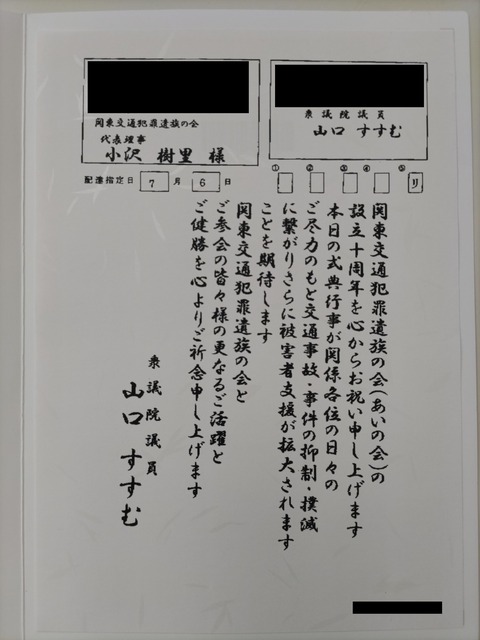 関東交通犯罪遺族の会
代表理事
小沢 樹里 様
衆議院議員
山口 すすむ
配達指定日 7 月 6 日
① ② ③ ④ ⑤
リ
関東交通犯罪遺族の会(あいの会)の
設立十周年を心からお祝い申し上げます
本日の式典行事が関係各位の日々の
ご尽力のもと交通事故・事件の抑制・撲滅
に繋がりさらに被害者支援が拡大されます
ことを期待します
関東交通犯罪遺族の会と
ご参会の皆々様の更なるご活躍と
ご健勝を心よりご祈念申し上げます
衆議院議員
山口 すすむ